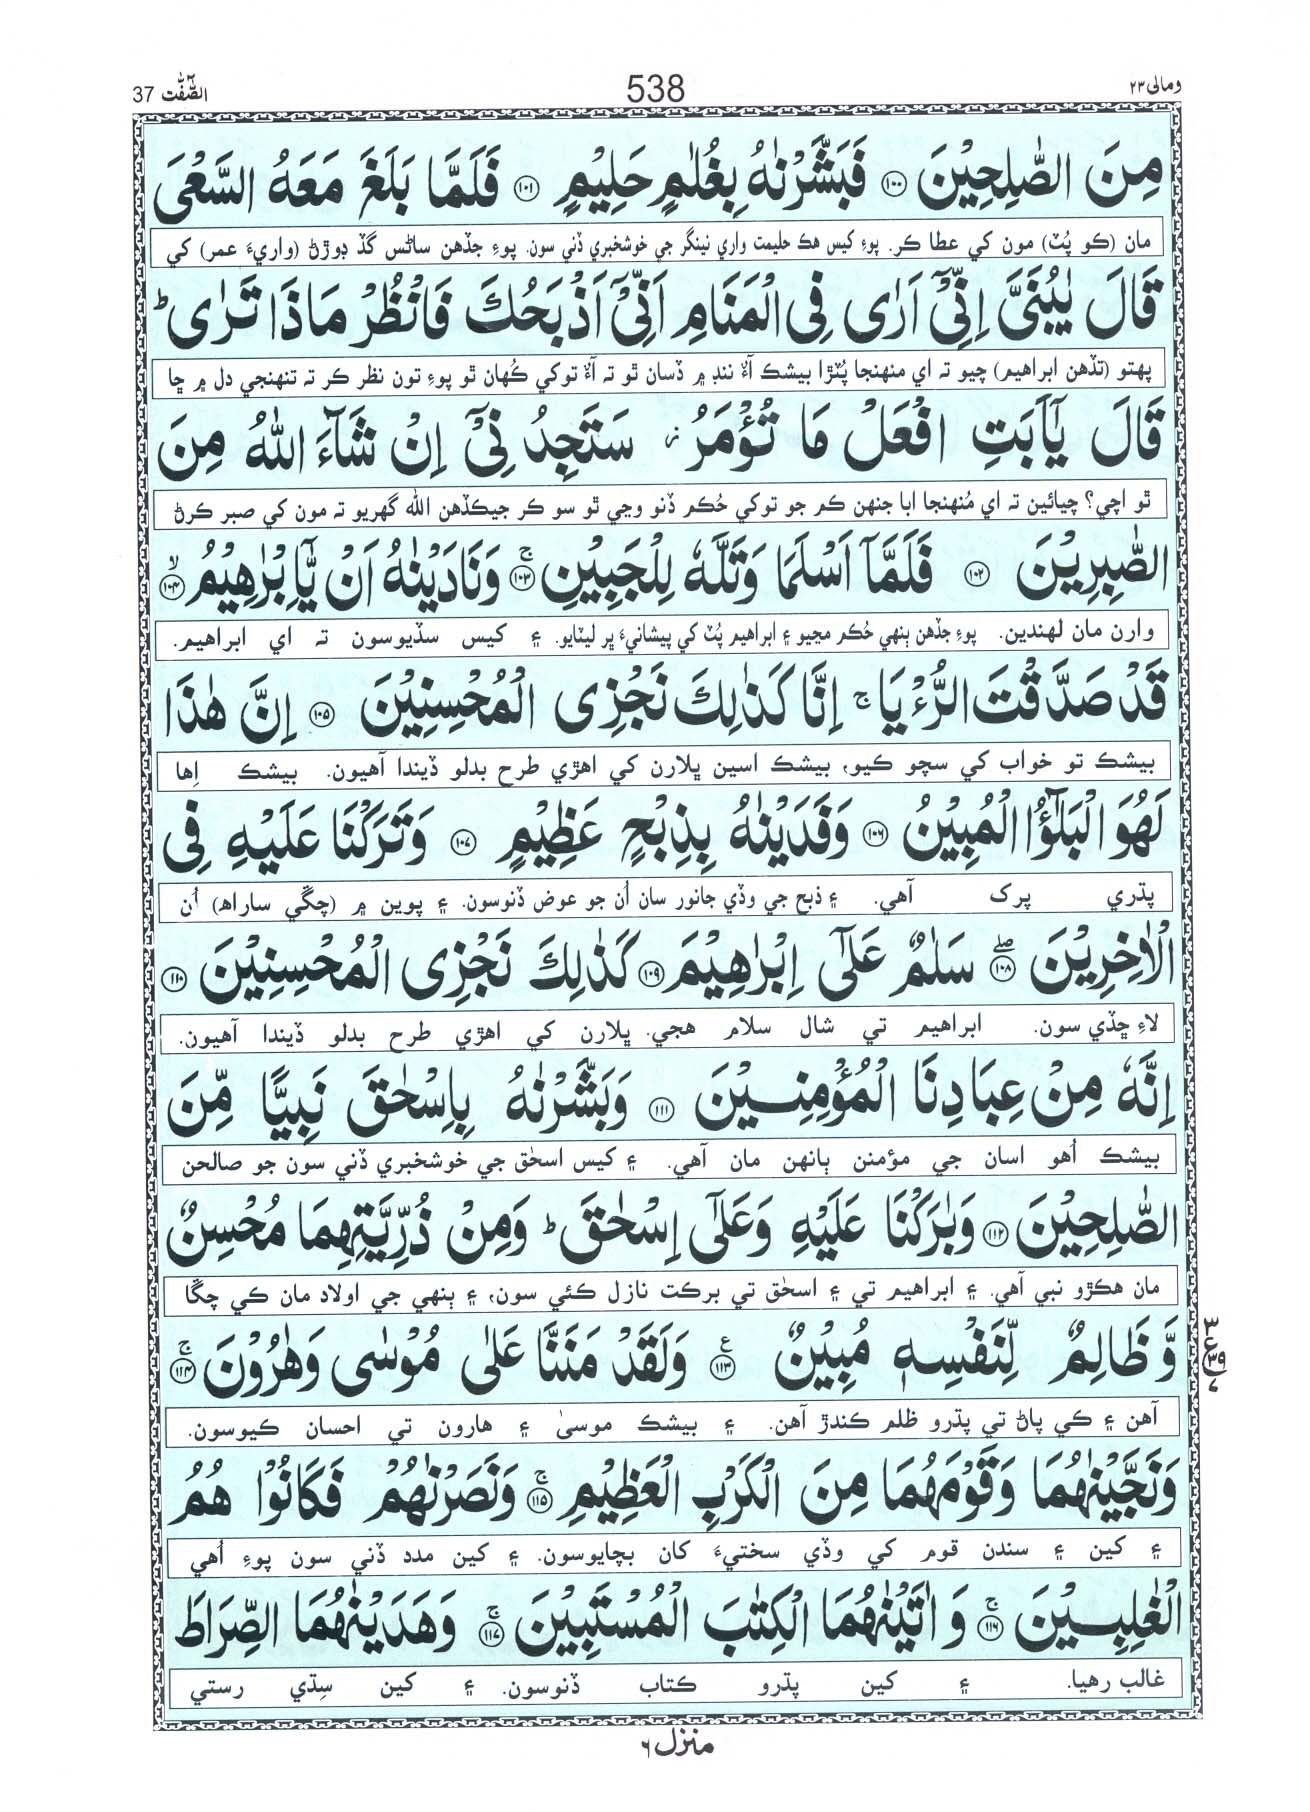 ومالی ۲۳
538
الصّٰٓفّٰت 37
مِنَ الصّٰلِحِيْنَ ۝۱۰۰ فَبَشَّرْنٰهُ بِغُلٰمٍ حَلِيْمٍ ۝۱۰۱ فَلَمَّا بَلَغَ مَعَهُ السَّعْىَ
مان (ڪو پُٽ) مون کي عطا ڪر. پوءِ کيس هڪ حليمت واري نينگر جي خوشخبري ڏني سون. پوءِ جڏهن ساڻس گڏ ڊوڙڻ (واريءَ عمر) کي
قَالَ يٰبُنَىَّ اِنِّىْٓ اَرٰى فِى الْمَنَامِ اَنِّىْٓ اَذْبَحُكَ فَانْظُرْ مَاذَا تَرٰى ؕ
پهتو (تڏهن ابراهيم) چيو ته اي منهنجا پُٽڙا بيشڪ آءٌ ننڊ ۾ ڏسان ٿو ته آءٌ توکي ڪُهان ٿو پوءِ تون نظر ڪر ته تنهنجي دل ۾ ڇا
قَالَ يٰٓاَبَتِ افْعَلْ مَا تُؤْمَرُ ز سَتَجِدُ نِىْٓ اِنْ شَآءَ اللّٰهُ مِنَ
ٿو اچي؟ چيائين ته اي مُنهنجا ابا جنهن ڪم جو توکي حُڪم ڏنو وڃي ٿو سو ڪر جيڪڏهن الله گهريو ته مون کي صبر ڪرڻ
الصّٰبِرِيْنَ ۝۱۰۲ فَلَمَّآ اَسْلَمَا وَتَلَّهٗ لِلْجَبِيْنِ ۝۱۰۳ۚ وَنَادَيْنٰهُ اَنْ يّٰٓاِبْرٰهِيْمُ ۝۱۰۴ۙ
وارن مان لهندين. پوءِ جڏهن ٻنهي حُڪم مڃيو ۽ ابراهيم پُٽ کي پيشانيءَ ڀر ليٽايو. ۽ کيس سڏيوسون ته اي ابراهيم.
قَدْ صَدَّقْتَ الرُّءْيَا ۚ اِنَّا كَذٰلِكَ نَجْزِى الْمُحْسِنِيْنَ ۝۱۰۵ اِنَّ هٰذَا
بيشڪ تو خواب کي سچو ڪيو، بيشڪ اسين ڀلارن کي اهڙي طرح بدلو ڏيندا آهيون. بيشڪ اِها
لَهُوَ الْبَلٰٓؤُا الْمُبِيْنُ ۝۱۰۶ وَفَدَيْنٰهُ بِذِبْحٍ عَظِيْمٍ ۝۱۰۷ وَتَرَكْنَا عَلَيْهِ فِى
پڌري پرک آهي. ۽ ذبح جي وڏي جانور سان اُن جو عوض ڏنوسون. ۽ پوين ۾ (چڱي ساراهہ) اُن
الْاٰخِرِيْنَ ۝۱۰۸ۖ سَلٰمٌ عَلٰٓى اِبْرٰهِيْمَ ۝۱۰۹ كَذٰلِكَ نَجْزِى الْمُحْسِنِيْنَ ۝۱۱۰
لاءِ ڇڏي سون. ابراهيم تي شال سلام هجي. ڀلارن کي اهڙي طرح بدلو ڏيندا آهيون.
اِنَّهٗ مِنْ عِبَادِنَا الْمُؤْمِنِيْنَ ۝۱۱۱ وَبَشَّرْنٰهُ بِاِسْحٰقَ نَبِيًّا مِّنَ
بيشڪ اُهو اسان جي مؤمنن ٻانهن مان آهي. ۽ کيس اسحٰق جي خوشخبري ڏني سون جو صالحن
الصّٰلِحِيْنَ ۝۱۱۲ وَبٰرَكْنَا عَلَيْهِ وَعَلٰٓى اِسْحٰقَ ؕ وَمِنْ ذُرِّيَّتِهِمَا مُحْسِنٌ
مان هڪڙو نبي آهي. ۽ ابراهيم تي ۽ اسحٰق تي برڪت نازل ڪئي سون، ۽ ٻنهي جي اولاد مان ڪي چڱا
وَّظَالِمٌ لِّنَفْسِهٖ مُبِيْنٌ ۝۱۱۳ ع وَلَقَدْ مَنَنَّا عَلٰى مُوْسٰى وَهٰرُوْنَ ۝۱۱۴ۚ
آهن ۽ ڪي پاڻ تي پڌرو ظلم ڪندڙ آهن. ۽ بيشڪ موسيٰ ۽ هارون تي احسان ڪيوسون.
وَنَجَّيْنٰهُمَا وَقَوْمَهُمَا مِنَ الْكَرْبِ الْعَظِيْمِ ۝۱۱۵ۚ وَنَصَرْنٰهُمْ فَكَانُوْا هُمُ
۽ کين ۽ سندن قوم کي وڏي سختيءَ کان بچايوسون. ۽ کين مدد ڏني سون پوءِ اُهي
الْغٰلِبِيْنَ ۝۱۱۶ۚ وَاٰتَيْنٰهُمَا الْكِتٰبَ الْمُسْتَبِيْنَ ۝۱۱۷ۚ وَهَدَيْنٰهُمَا الصِّرَاطَ
غالب رهيا. ۽ کين پڌرو ڪتاب ڏنوسون. ۽ کين سِڌي رستي
منزل ۶